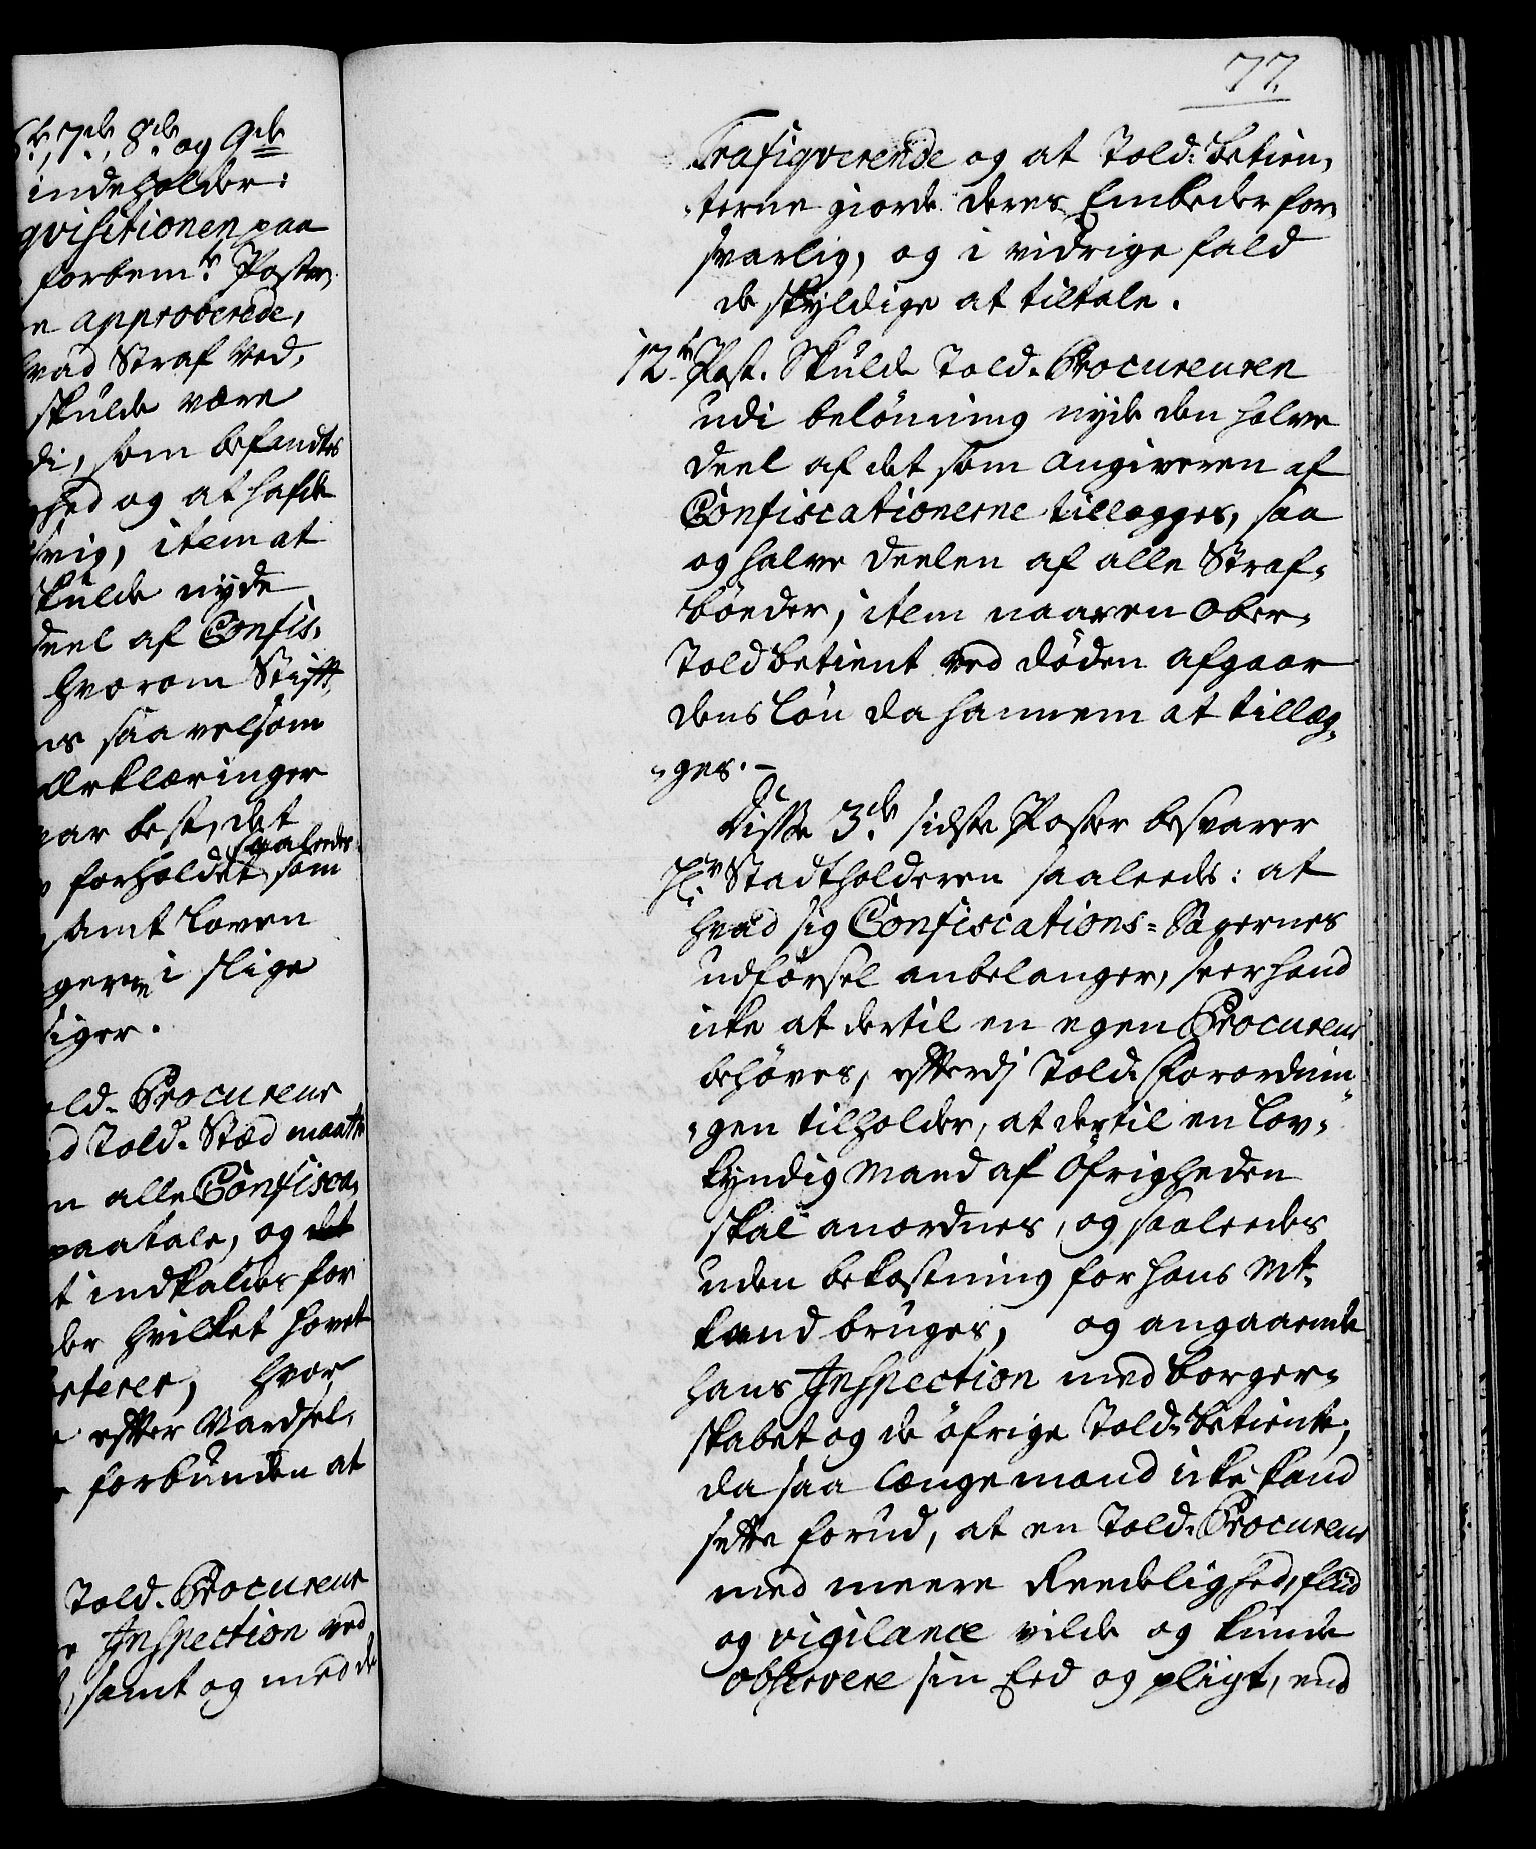 6te, 7de, 8de og 9de
indeholder:
qvisitionen paa
forbemte Poster
approberede,
hvad Straf ved,
skulde være
di, som befandtes
hed og at hafde
svig, item at
skulde nyde
deel af Confis,
hvorom Stift,
saavelsom
Erklæringer
det
saaleedes
forholdet, som
samt Loven
i slige
siger.
Told-Procureur
Told-Stæd maatte
alle Confisca,
paatale, og det
indkalder for
hvilket Hovet
hvor
efter Vardsel,
forbunden at
Told-Procureur
Inspection ved
, samt og med de
77.
Trafiqverende og at Told-betien,
-terne giorde deres Embeder for,
svarlig, og i vidrige fald
de skyldige at tiltale.
12te Post. Skulde Told-Procureuren
udi belönning nyde den halve
deel af det som Angiveren af
Confiscationerne tillegges, saa
og halve Deelen af alle Straf-
böeder, item naar en Ober-
Toldbetient ved Döden afgaar
dens Lön da hannem at tillæg,
-ges.-
Disse 3de sidste Poster besvarer
Hr. Stadtholderen saaleeds: at
hvad sig Confiscations-Sagernes
udförsel anbelanger, seer hand
icke at dertil en egen Procureur
behöves, efterdj Told-Forordnin-
-gen tilholder, at dertil en Lov-
kyndig Mand af Öfrigheden
skal anordnes, og saaleedes
uden bekostning for Hans Mt.
kand bruges, og angaaende
hans Inspection med borger-
skabet og de öfrige Told-betiente,
da saa længe mand icke kand
sette forud, at en Told-Procureur
med meere Reedelighed, fliid
og vigilance vilde og kunde
observere sin Eed og pligt, end